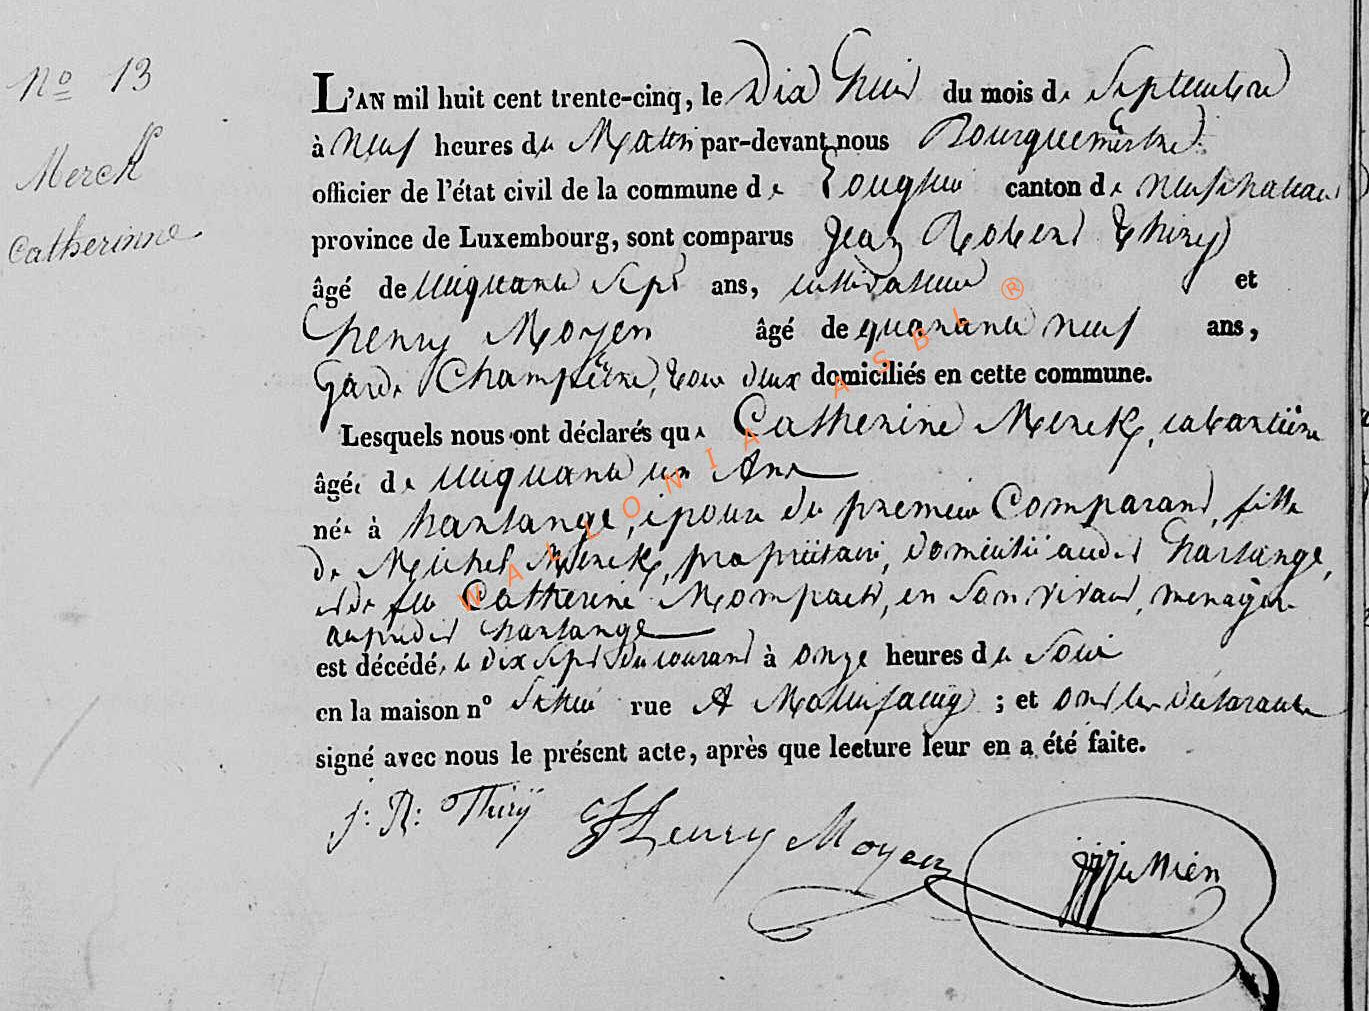 No 13
Merck
Catherinne
L'AN mil huit cent trente-cinq, le Dix huit du mois de Septembre
à Neuf heures du Matin par-devant nous Bourguemestre
officier de l'état civil de la commune de canton de neufchateau
province de Luxembourg, sont comparus Jean Robert Thiry
âgé de cinquante Sept ans, cultivateur et
henry Moyen âgé de quarante neuf ans,
Garde Champêtre, tous deux domiciliés en cette commune.
Lesquels nous ont déclarés que Catherine Merck, cabartière
âgée de cinquante un Ans
née à harlange, épouse du premier Comparant, fille
de Michel Merck, propriétaire, domicilié audit harlange,
et de feu Catherine Mompach, en Son vivant, menagère
auprédit harlange
est décédée le dix Sept du courant à onze heures du Soir
en la maison no Située rue A Mollifaing ; et ont les déclarants
signé avec nous le présent acte, après que lecture leur en a été faite.
J: R: Thirÿ Henry Moyen
WALLONIA ASBL ®